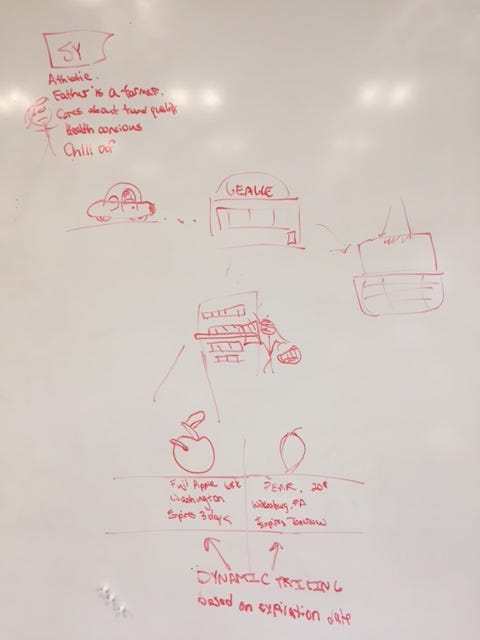 SY
Athletic.
Father is a farmer.
Cares about food quality
Health concious
Chill
Fuji Apple
Washington
Expires 3 days
PEAR,
PA
Expires Tomorrow
DYNAMIC PRICING
based on expiration date